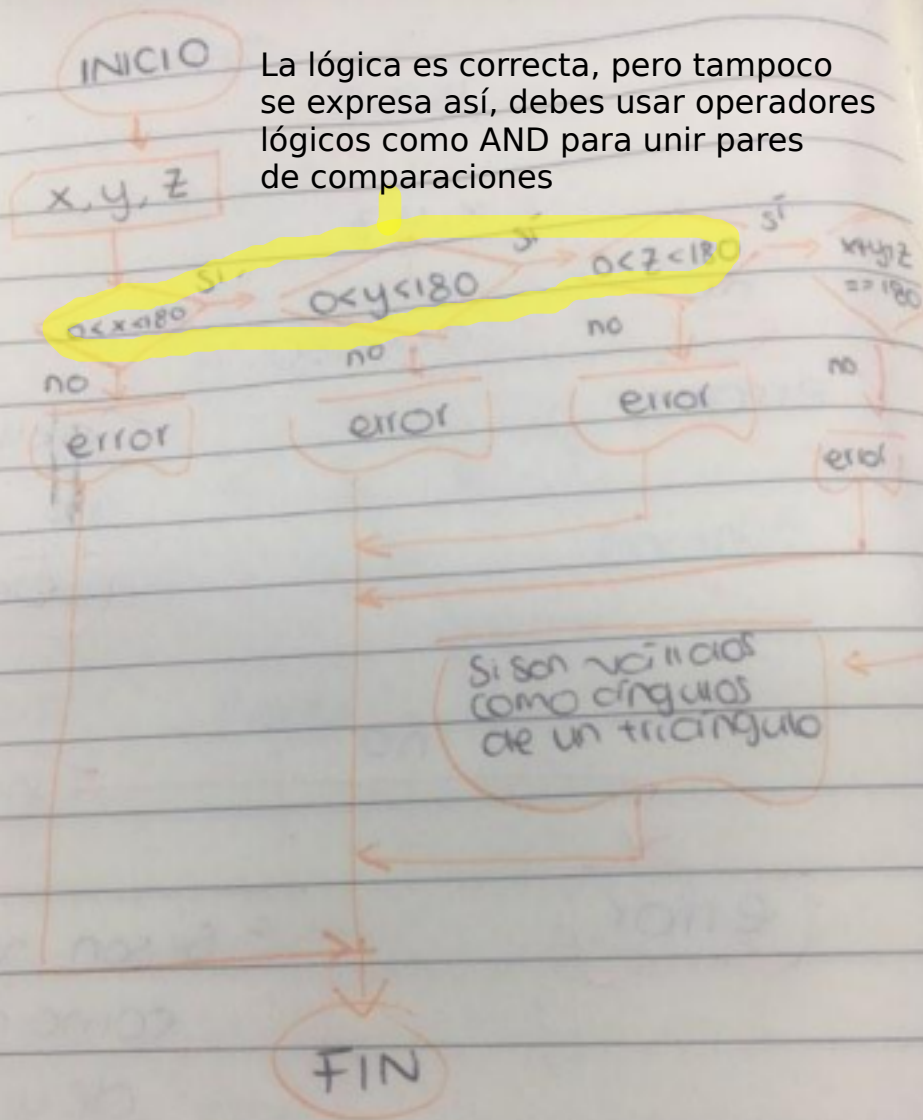 INICIO
La lógica es correcta, pero tampoco
se expresa así, debes usar operadores
lógicos como AND para unir pares
de comparaciones
x, y, z
0<x<180
Sí
0<y<180
Sí
0<z<180
Sí
x+y+z
==180
no
no
no
no
error
error
error
error
Si son válidos
como ángulos
de un triángulo
FIN